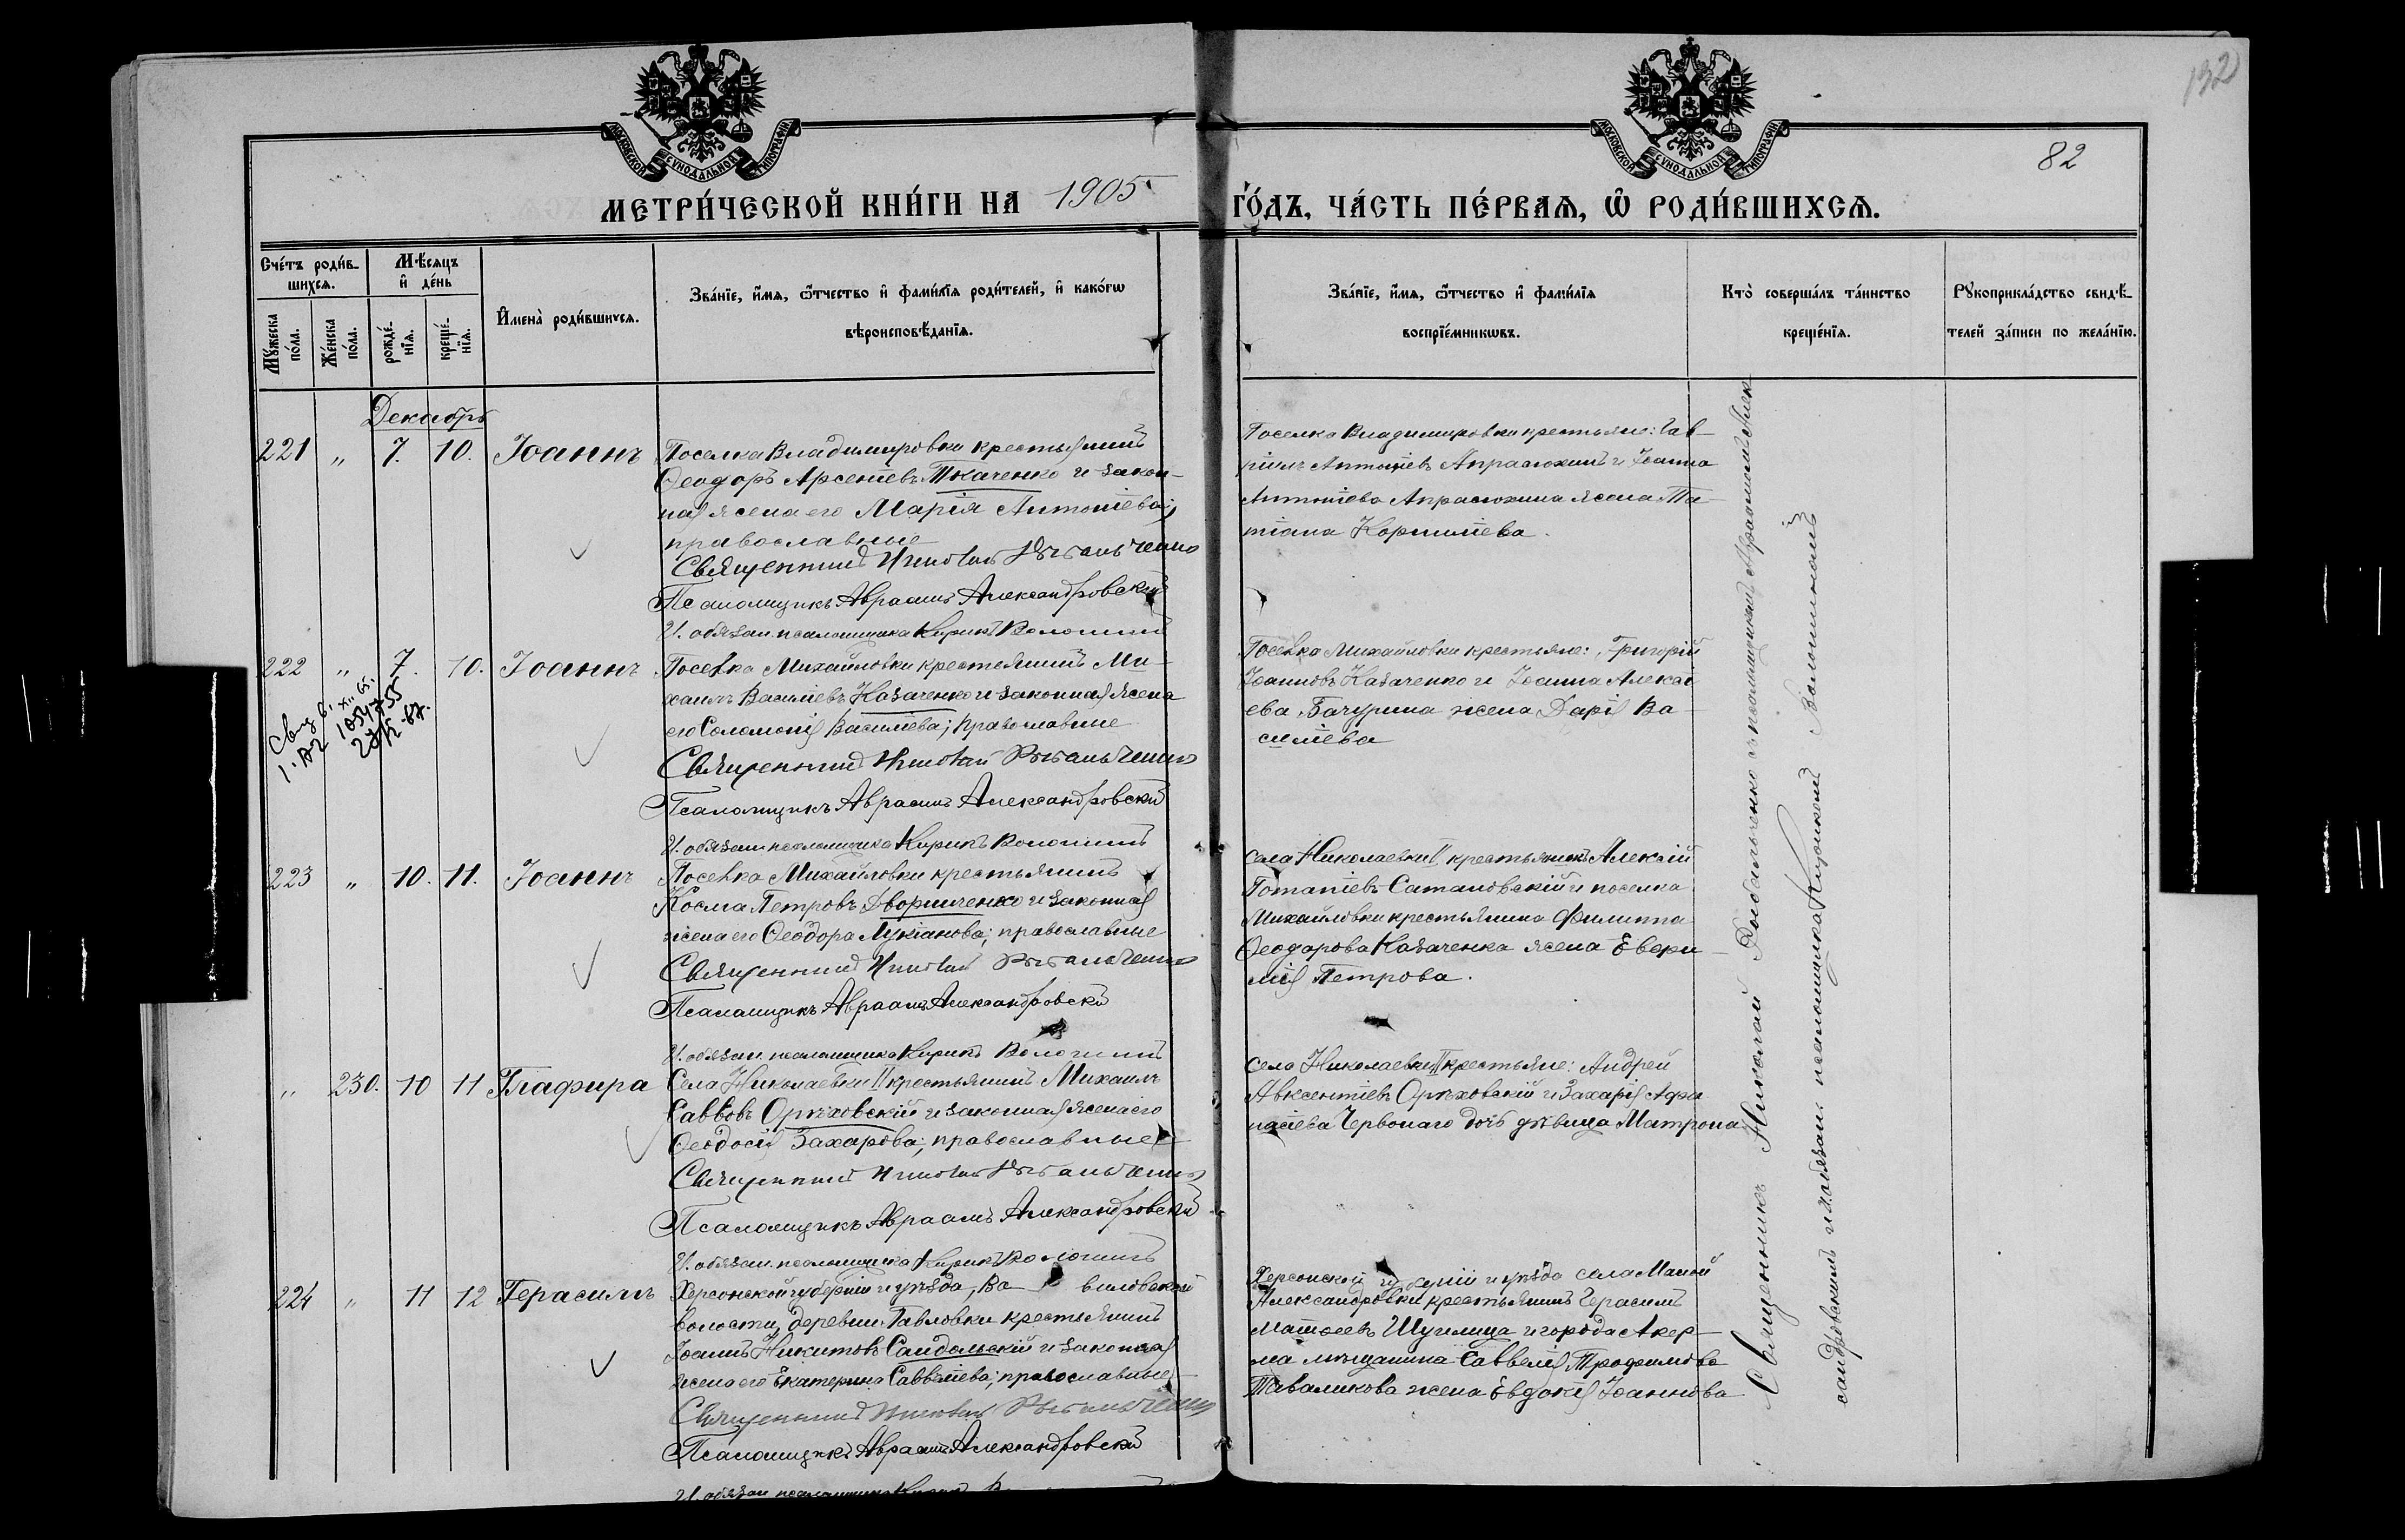 132
82
МОСКОВСКОЙ СѴНОДАЛЬНОЙ ТИПОГРАФІИ
МОСКОВСКОЙ СѴНОДАЛЬНОЙ ТИПОГРАФІИ
МЕТРИ́ЧЕСКОЙ КНИ́ГИ НА 1905 ГО́ДЪ, ЧА́СТЬ ПЕ́РВАѦ, Ѡ РОДИ́ВШИХСѦ.
Сче́тъ роди́в-
шихсѧ.
Мꙋ́жеска по́ла.
Же́нска по́ла.
Мѣ́сѧцъ и҆ де́нь
рожде́-
нїѧ.
креще́-
нїѧ.
И҆мена̀ роди́вшихсѧ.
Зва́нїе, и҆́мѧ, ѻ҆́тчество и҆ фами́лїѧ роди́телей, и҆ како́гѡ
вѣроисповѣ́данїѧ.
Зва́нїе, и҆́мѧ, ѻ҆́тчество и҆ фами́лїѧ
воспрїе́мникѡвъ.
Кто̀ соверша́лъ та́инство
креще́нїѧ.
Рꙋкоприкла́дство свидѣ́-
телей за́писи по жела́нїю.
Декабрь
221 " 7. 10. Іоаннъ
Поселка Владимировки крестьянинъ
Ѳеодоръ Арсеніевъ Ткаченко и закон-
ная жена его Марія Антоніева;
православные
Священникъ Николай Рыбальченко
Псаломщикъ Авраамъ Александровскій
И. обязан. псаломщика Кирикъ Волошинъ
Поселка Владимировки крестьяне: Гав-
ріилъ Антоніевъ Апрасюхинъ и Іоанна
Антоніева Апрасюхина жена Та-
тіана Корниліева.
222 " 7. 10. Іоаннъ
Поселка Михайловки крестьянинъ Ми-
хаилъ Василіевъ Казаченко и законная жена
его Соломонія Василіева; православные
Священникъ Николай Рыбальченко
Псаломщикъ Авраамъ Александровскій
И. обязан. псаломщика Кирикъ Волошинъ
Поселка Михайловки крестьяне: Григорій
Іоанновъ Казаченко и Іоанна Алексі
ева Бачурина жена Дарія Ва-
силіева
223 " 10. 11. Іоаннъ
Поселка Михайловки крестьянинъ
Косма Петровъ Дворниченко и законная
жена его Ѳеодора Лукіанова; православные
Священникъ Николай Рыбальченко
Псаломщикъ Авраамъ Александровскій
И. обязан. псаломщика Кирикъ Волошинъ
Села Николаевки II крестьянинъ Алексій
Потапіевъ Сатановскій и поселка
Михайловки крестьянина Филиппа
Ѳеодорова Казаченка жена Евфи-
мія Петрова.
" 230. 10 11 Глафира
Села Николаевки II крестьянинъ Михаилъ
Саввовъ Орѣховскій и законная жена его
Ѳеодосія Захарова; православные
Священникъ Николай Рыбальченко
Псаломщикъ Авраамъ Александровскій
И. обязан. псаломщика Кирикъ Волошинъ
Села Николаевки II крестьяне: Андрей
Авксентіевъ Орѣховскій и Захарія Афа
насіева Червонаго дочь дѣвица Матрона
224 " 11 12 Герасимъ
Херсонской губерніи и уѣзда, виловской
волости, деревни Павловки крестьянинъ
Іоаннъ Никитовъ Сандальскій и законная
жена его Екатерина Савеліева; православные
Священникъ Николай Рыбальченко
Псаломщикъ Авраамъ Александровскій
И. обязан. псаломщика Кирикъ
Херсонской губерніи и уѣзда села Малой
Александровки крестьянинъ Герасимъ
Матѳеевъ Шугилица и города Акер-
ма мѣщанина Савелія Трофимова
жена Евдокія Іоаннова
Священникъ Николай Рыбальченко съ псаломщикомъ Авраамомъ Алек
сандровскимъ и и. обязан. псаломщика Кирикомъ Волошинымъ